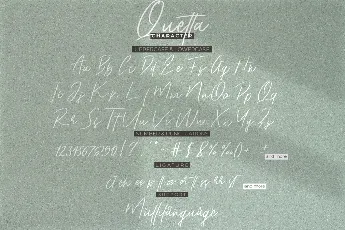 Quetta
CHARACTER
UPPERCASE & LOWERCASE
Aa Bb Cc Dd Ee Ff Gg Hh
Ii Jj Kk Ll Mm Nn Oo Pp Qq
Rr Ss Tt Uu Vv Ww Xx Yy Zz
NUMBER & PUNCTUATION
1234567890
and more
LIGATURE
and more
Multilanguage